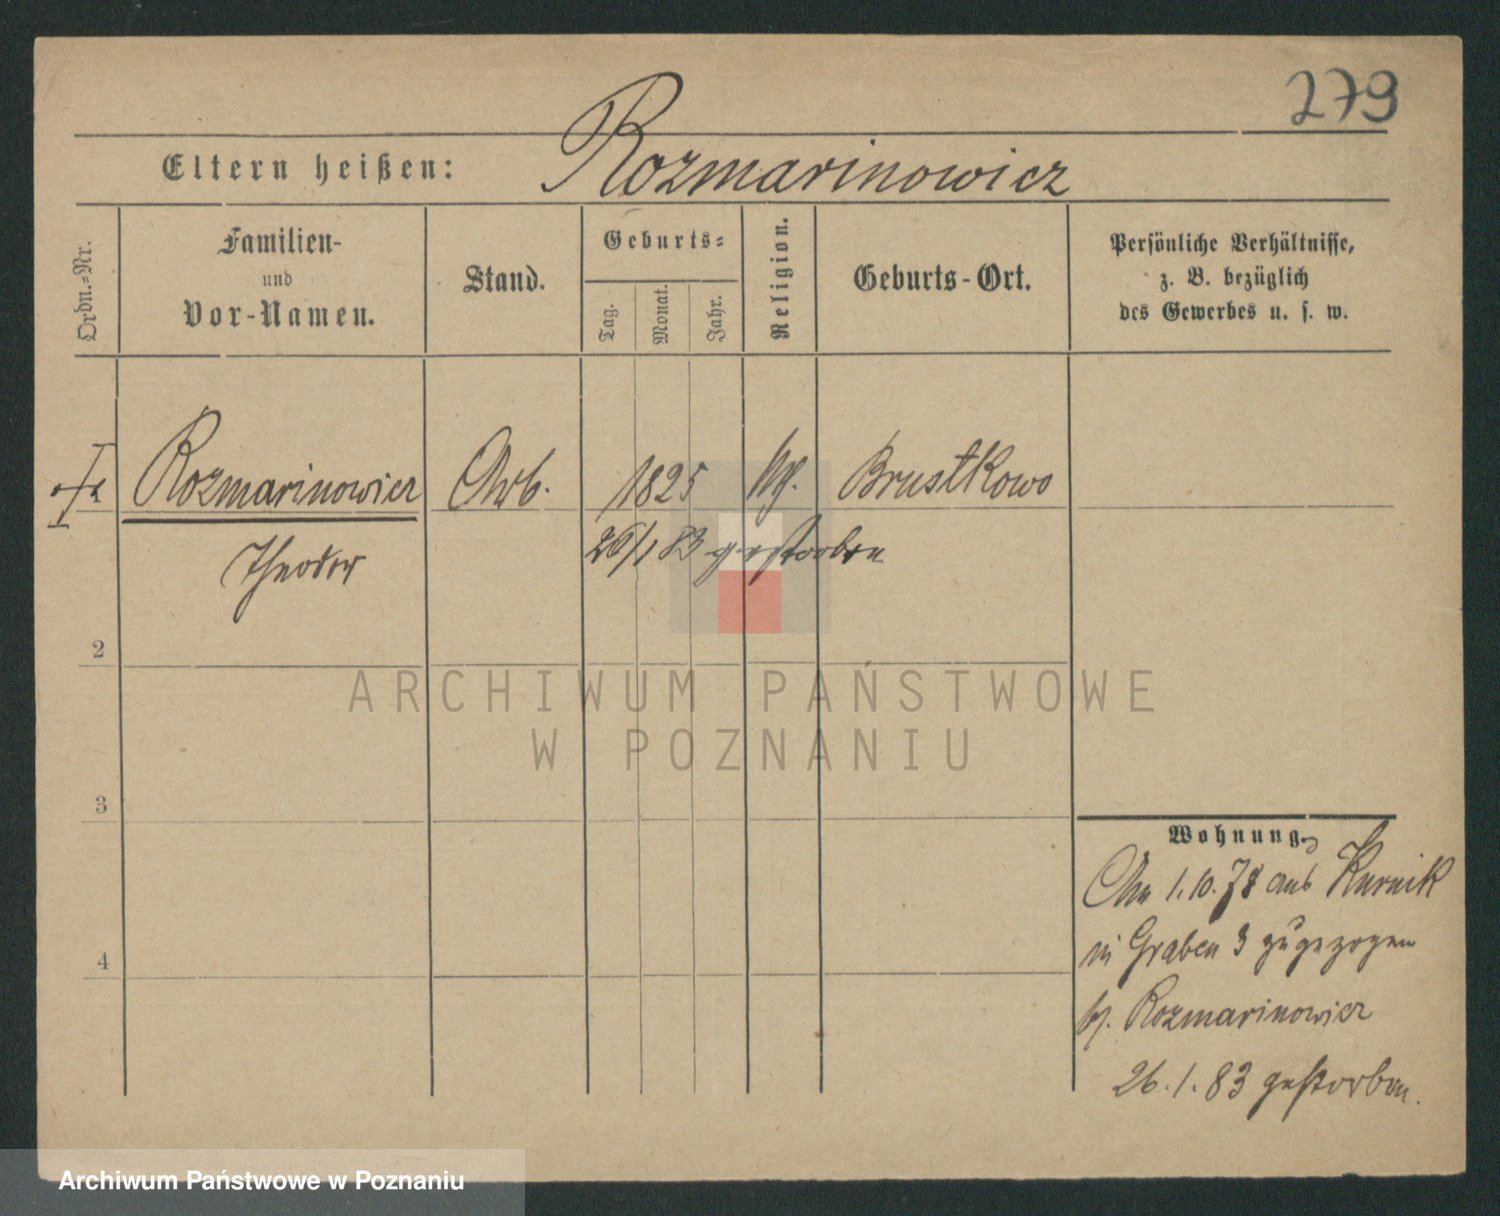 279
Eltern heißen: Rozmarinowicz
Ordn.-Nr.
Familien-
und
Vor-Namen.
Stand.
Geburts-
Tag.
Monat.
Jahr.
Religion.
Geburts-Ort.
Persönliche Verhältnisse,
z. B. bezüglich
des Gewerbes u. s. w.
Rozmarinowicz Arb. 1825 Brustkowo
Theodor
26/1 83 gestorben
2
ARCHIWUM PAŃSTWOWE
W POZNANIU
3
Wohnung.
Am 1.10.78 aus Kurnik
in Graben 3 zugezogen
Rozmarinowicz
26.1.83 gestorben.
4
Archiwum Państwowe w Poznaniu